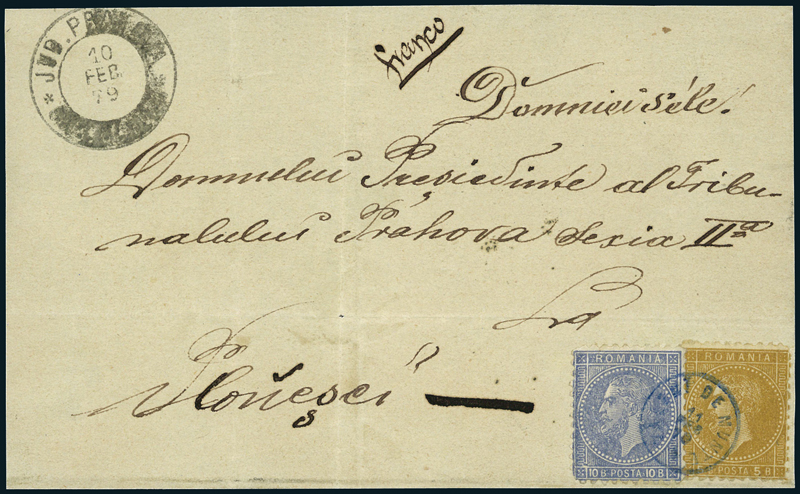 * JUD. PRAHOVA *
10
FEB.
79
franco
Domniei séle!
Domnului Preşiedinte al Tribu-
nalului Prahova Sexia IIa
La
Ploueşci
ROMANIA
10 B POSTA 10 B
ROMANIA
POSTA 5 B
DE
11